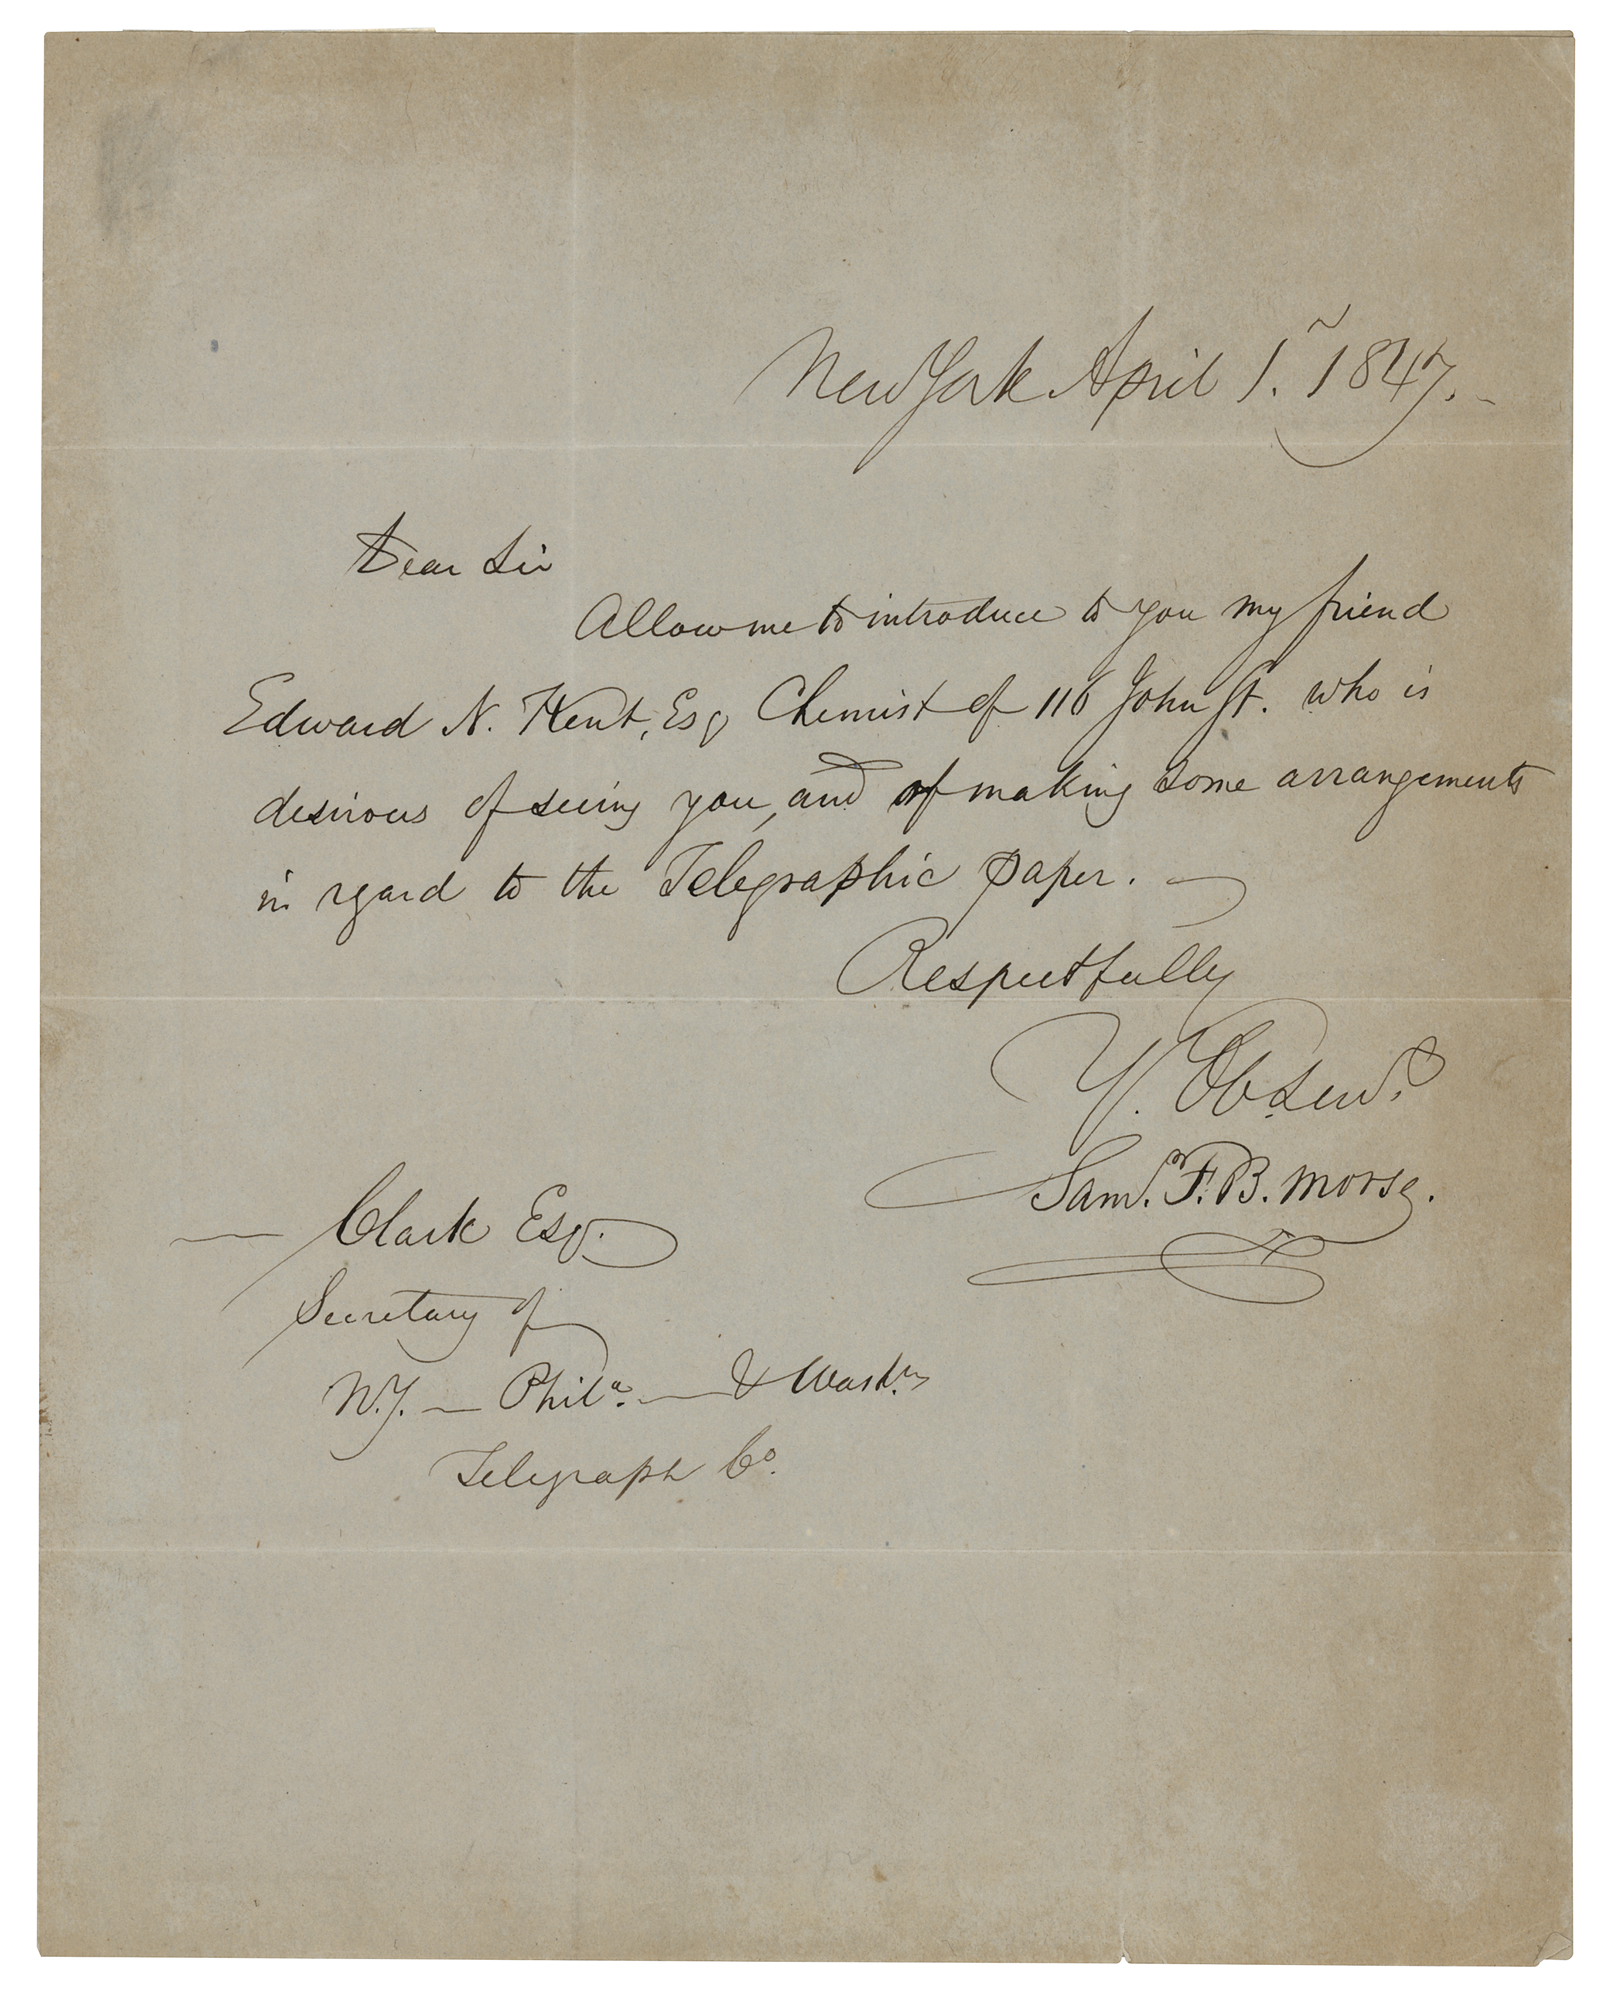 New York April 1. 1847.
Dear Sir
Allow me to introduce to you my friend
Edward N. Kent, Esq Chemist of 116 John St. who is
desirous of seeing you, and of making some arrangements
in regard to the Telegraphic paper.
Respectfully
Y. Ob. Serv.t
Sam. F. B. Morse.
— Clark Esq.
Secretary of
N.Y. — Phila. — & Washn
Telegraph Co.